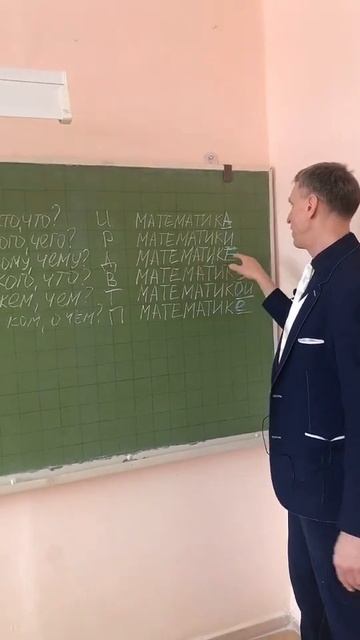 то, что? И МАТЕМАТИКА
ого, чего? Р МАТЕМАТИКИ
ому, чему? Д МАТЕМАТИКЕ
кого, что? В МАТЕМАТИК
кем, чем? Т МАТЕМАТИКОЙ
ком, о чём? П МАТЕМАТИКе